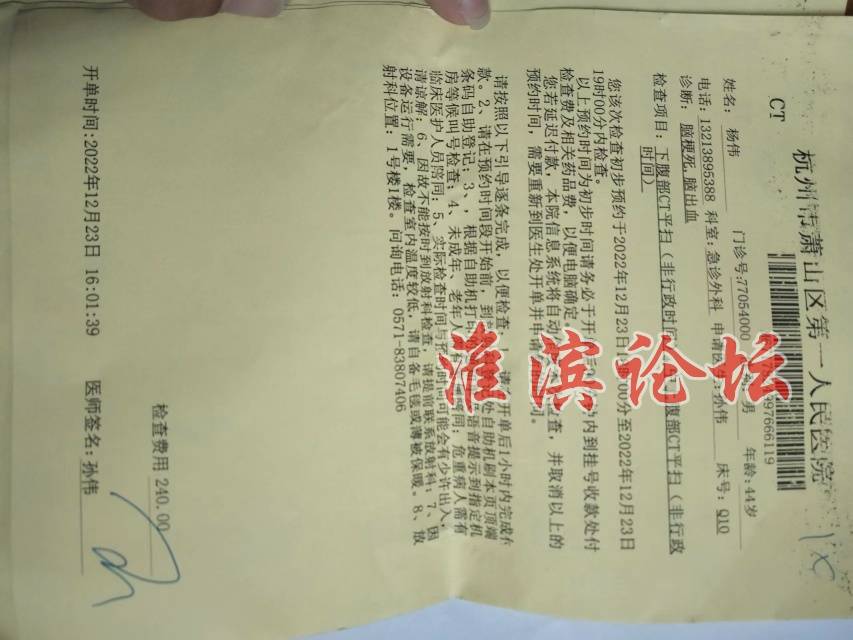 杭州市萧山区第一人民医院
CT
97666119
姓名: 杨伟 门诊号:77054000 男 年龄:44岁
电话:13213895388 科室:急诊外科 申请 孙伟 床号: Q10
诊断: 脑梗死,脑出血
检查项目: 下腹部CT平扫(非行政时间 腹部CT平扫(非行政
时间)
您该次检查初步预约于2022年12月23日 00分至2022年12月23日
19时00分内检查。
以上预约时间为初步时间请务必于开 内到挂号收款处付
检查费及相关药品费,以便电脑确定 查,并取消以上的
您若延迟付款,本院信息系统将自动
预约时间,需要重新到医生处开单并申请 间。
请按照以下引导逐条完成,以便检查: 请 开单后1小时内完成付
款。2、请在预约时间段开始前,到 处自助机刷本页顶端
条码自助登记;3、,根据自助机打 语音提示到指定机
房等候叫号检查;4、未成年、老年人 有 陪同;危重病人需有
临床医护人员陪同;5、实际检查时间与预 时间可能会有少许出入,
请谅解;6、因故不能按时到放射科检查,请提前联系放射科;7、因
设备运行需要,检查室内温度较低,请自备毛毯或薄被保暖。8、放
射科位置:1号楼1楼。问询电话:0571-83807406
检查费用 240.00
开单时间:2022年12月23日 16:01:39 医师签名: 孙伟
淮滨论坛